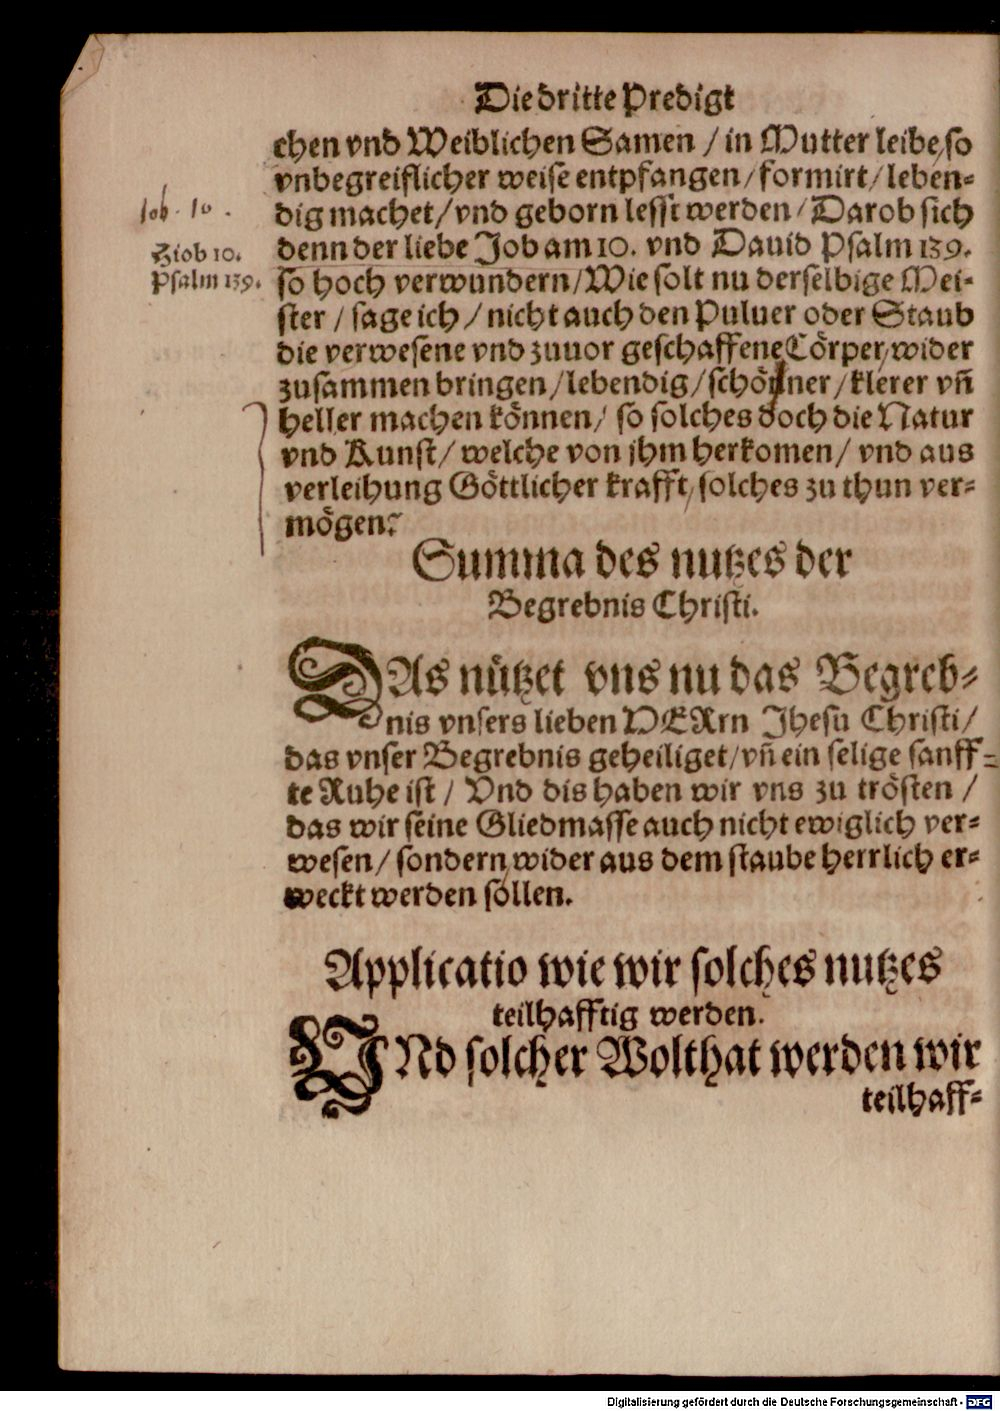 Die dritte Predigt
chen vnd Weiblichen Samen / in Mutter leibe, so
vnbegreiflicher weise entpfangen / formirt / leben-
Iob. 10.
dig machet / vnd geborn lesst werden / Darob sich
Hiob 10.
denn der liebe Job am 10. vnd Dauid Psalm 139.
Psalm 139.
so hoch verwundern / Wie solt nu derselbige Mei-
ster / sage ich / nicht auch den Puluer oder Staub
die verwesene vnd zuuor geschaffene Cörper, wider
zusammen bringen / lebendig / schöner / klerer vñ
heller machen können / so solches doch die Natur
vnd Kunst / welche von jhm herkomen / vnd aus
verleihung Göttlicher krafft, solches zu thun ver-
mögen?
Summa des nutzes der
Begrebnis Christi.
DAs nützet vns nu das Begreb-
nis vnsers lieben HERrn Jhesu Christi /
das vnser Begrebnis geheiliget / vñ ein selige sanff-
te Ruhe ist / Vnd dis haben wir vns zu trösten /
das wir seine Gliedmasse auch nicht ewiglich ver-
wesen / sondern, wider aus dem staube herrlich er-
weckt werden sollen.
Applicatio wie wir solches nutzes
teilhafftig werden.
VNd solcher Wolthat werden wir
teilhaff-
Digitalisierung gefördert durch die Deutsche Forschungsgemeinschaft - DFG